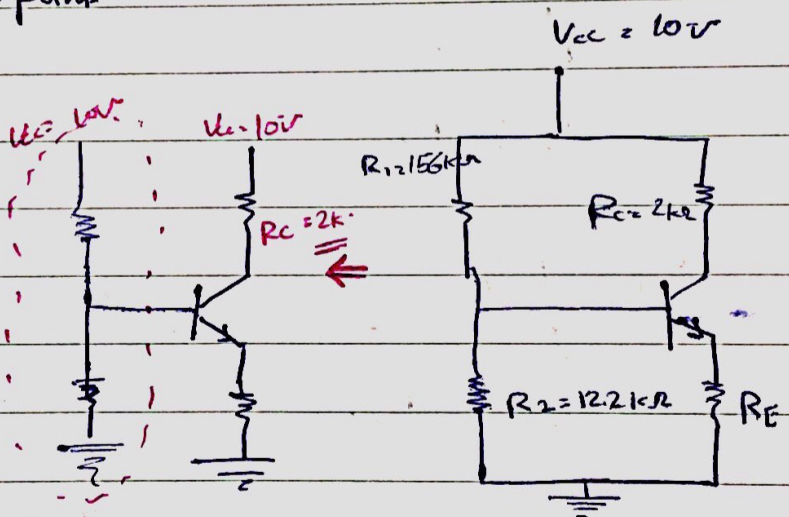 Vcc = 10V
Vcc = 10V
Vcc = 10V
R1 = 156kΩ
RC = 2kΩ
RC = 2k
R2 = 12.2kΩ
RE